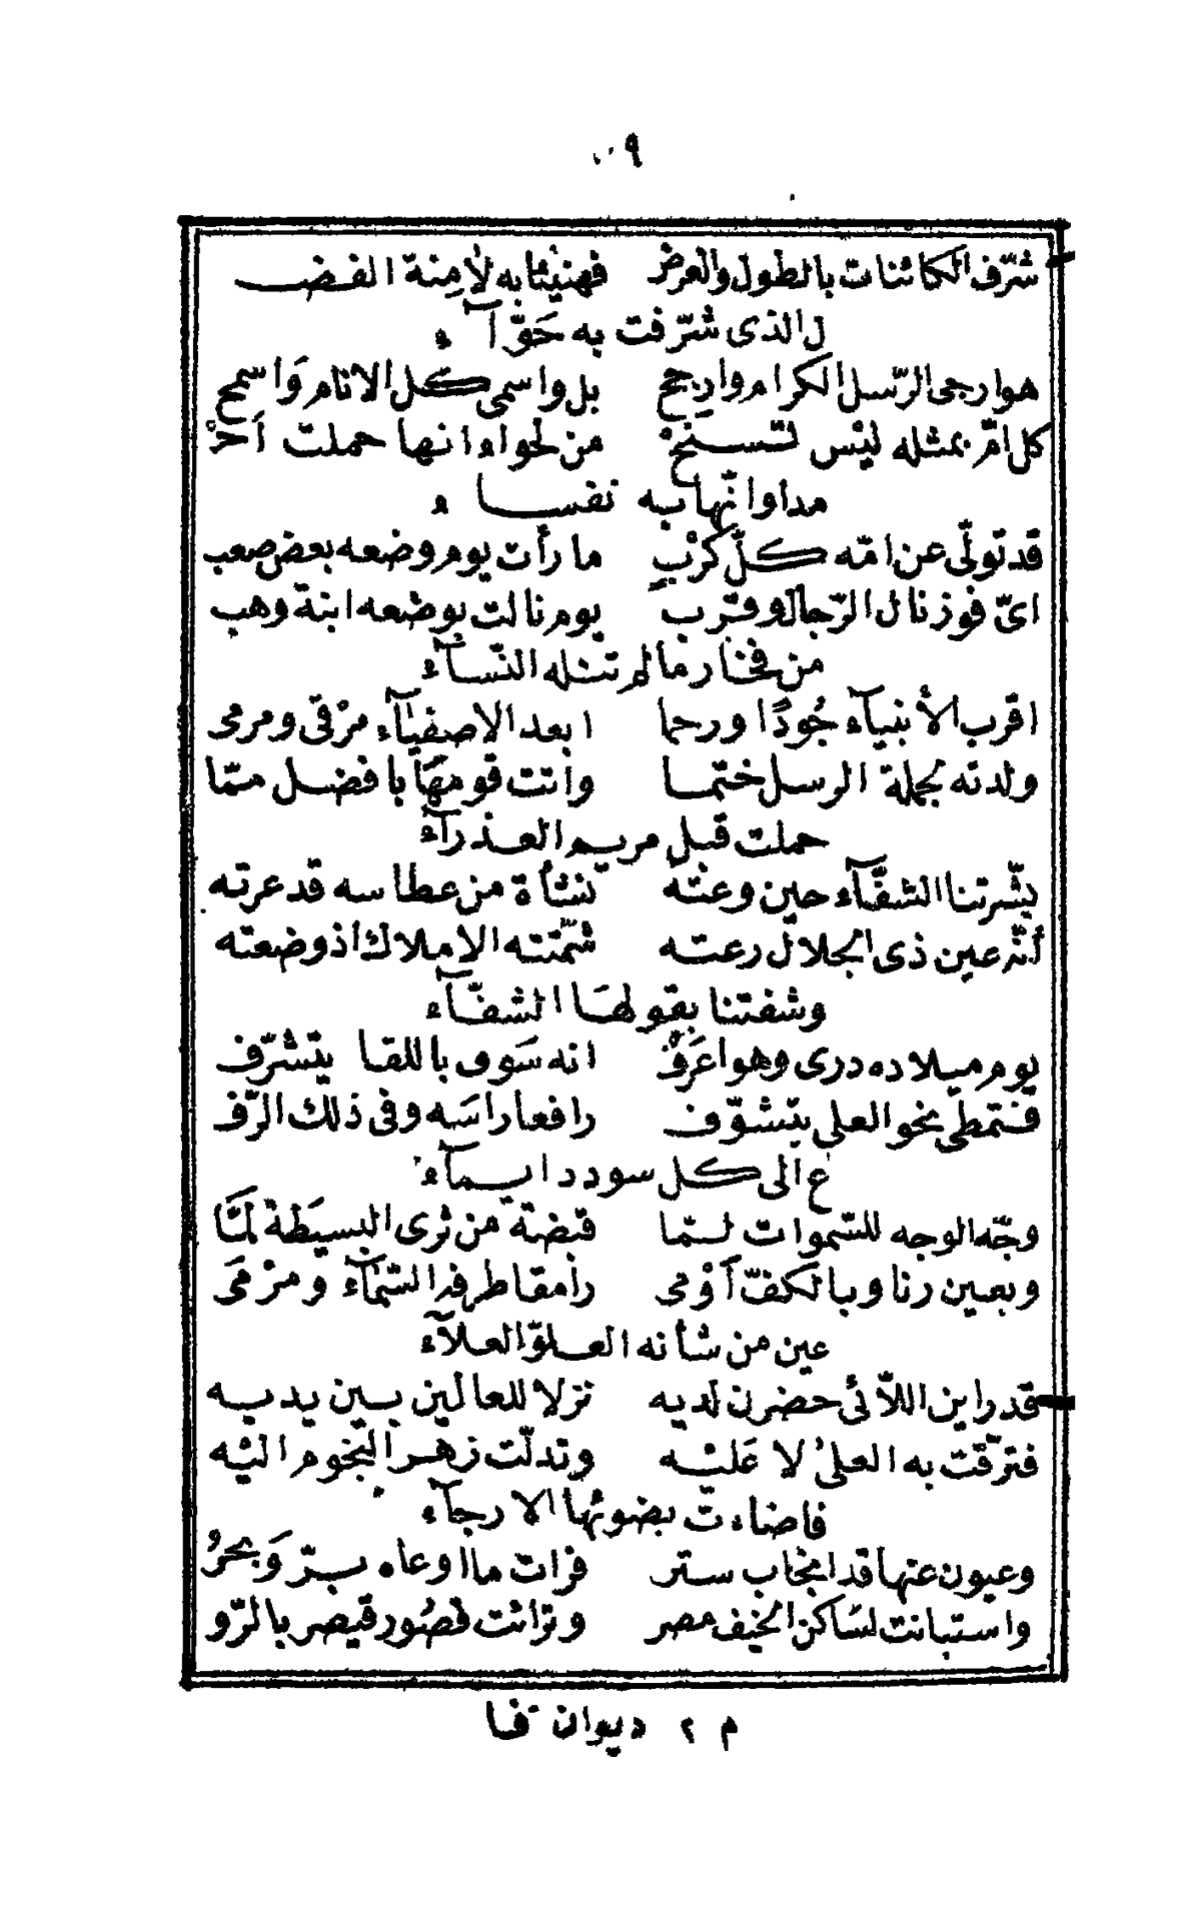 ٩
شرّف الكائنات بالطول والعرض فهنيئا به لاٰمِنة الفضـ
ل الذى شرّفت به حَوّآء
هو ارجى الرّسل الكرام وارجح بل واسمى كل الانام وَاسمح
كل امّ بمثله ليْس تسنحْ من لحواء انها حملت أحْـ
مدا وانّها به نفساء
قد تولّى عن امّه كلّ كرْبٍ ما رأت يوم وضعه بعض صعب
اىّ فوز نال الرّجال وقرب يوم نالت بوضعه ابنة وهب
من فخار ما لم تنله النّسآء
اقرب الأنبيآء جُودًا ورحما ابعد الاصفيآء مرْقى ومرمى
ولدته بجملة الرسل ختما وانت قومهَا بافضل ممّا
حملت قبل مريم العذرآء
بشّرتنا الشفّآء حين وعتْه نشأة من عطاسه قد عرته
أنّه عين ذى الجلال رعته شمّتته الاملاك اذ وضعته
وشفتنا بقولهَا الشفّآء
يوم ميلاده درى وهو اعَرفْ انه سَوف باللقا يتشرّف
فتمطى نحو العلى يتشوّف رافعا راسَه وفى ذلك الرّفـ
ع الى كل سودد ايمآء
وجّه الوجه للسّموات لـمّا قبضة من ثرى البسيَطة لَمّا
وبعين رنا وبالكفّ أوْمى رامقا طرفه السّمَآء ومرْمَى
عين من شأنه العلوّ العلآء
قد راين اللآئى حضرن لديه نزلا للعالين بين يديـه
فترقّت به العلىُ لا عَليْـه وتدلّت زهر النجوم اليْه
فاضاءت بضوئها الارجآء
وعيون عنها قد انجاب ستر فرات ما اوعاه بـرّ وَبحرُ
واستبانت لسَاكن الخيف مصر وترائت قصُور قيصر بالرّو
م ٢ ديوان فا